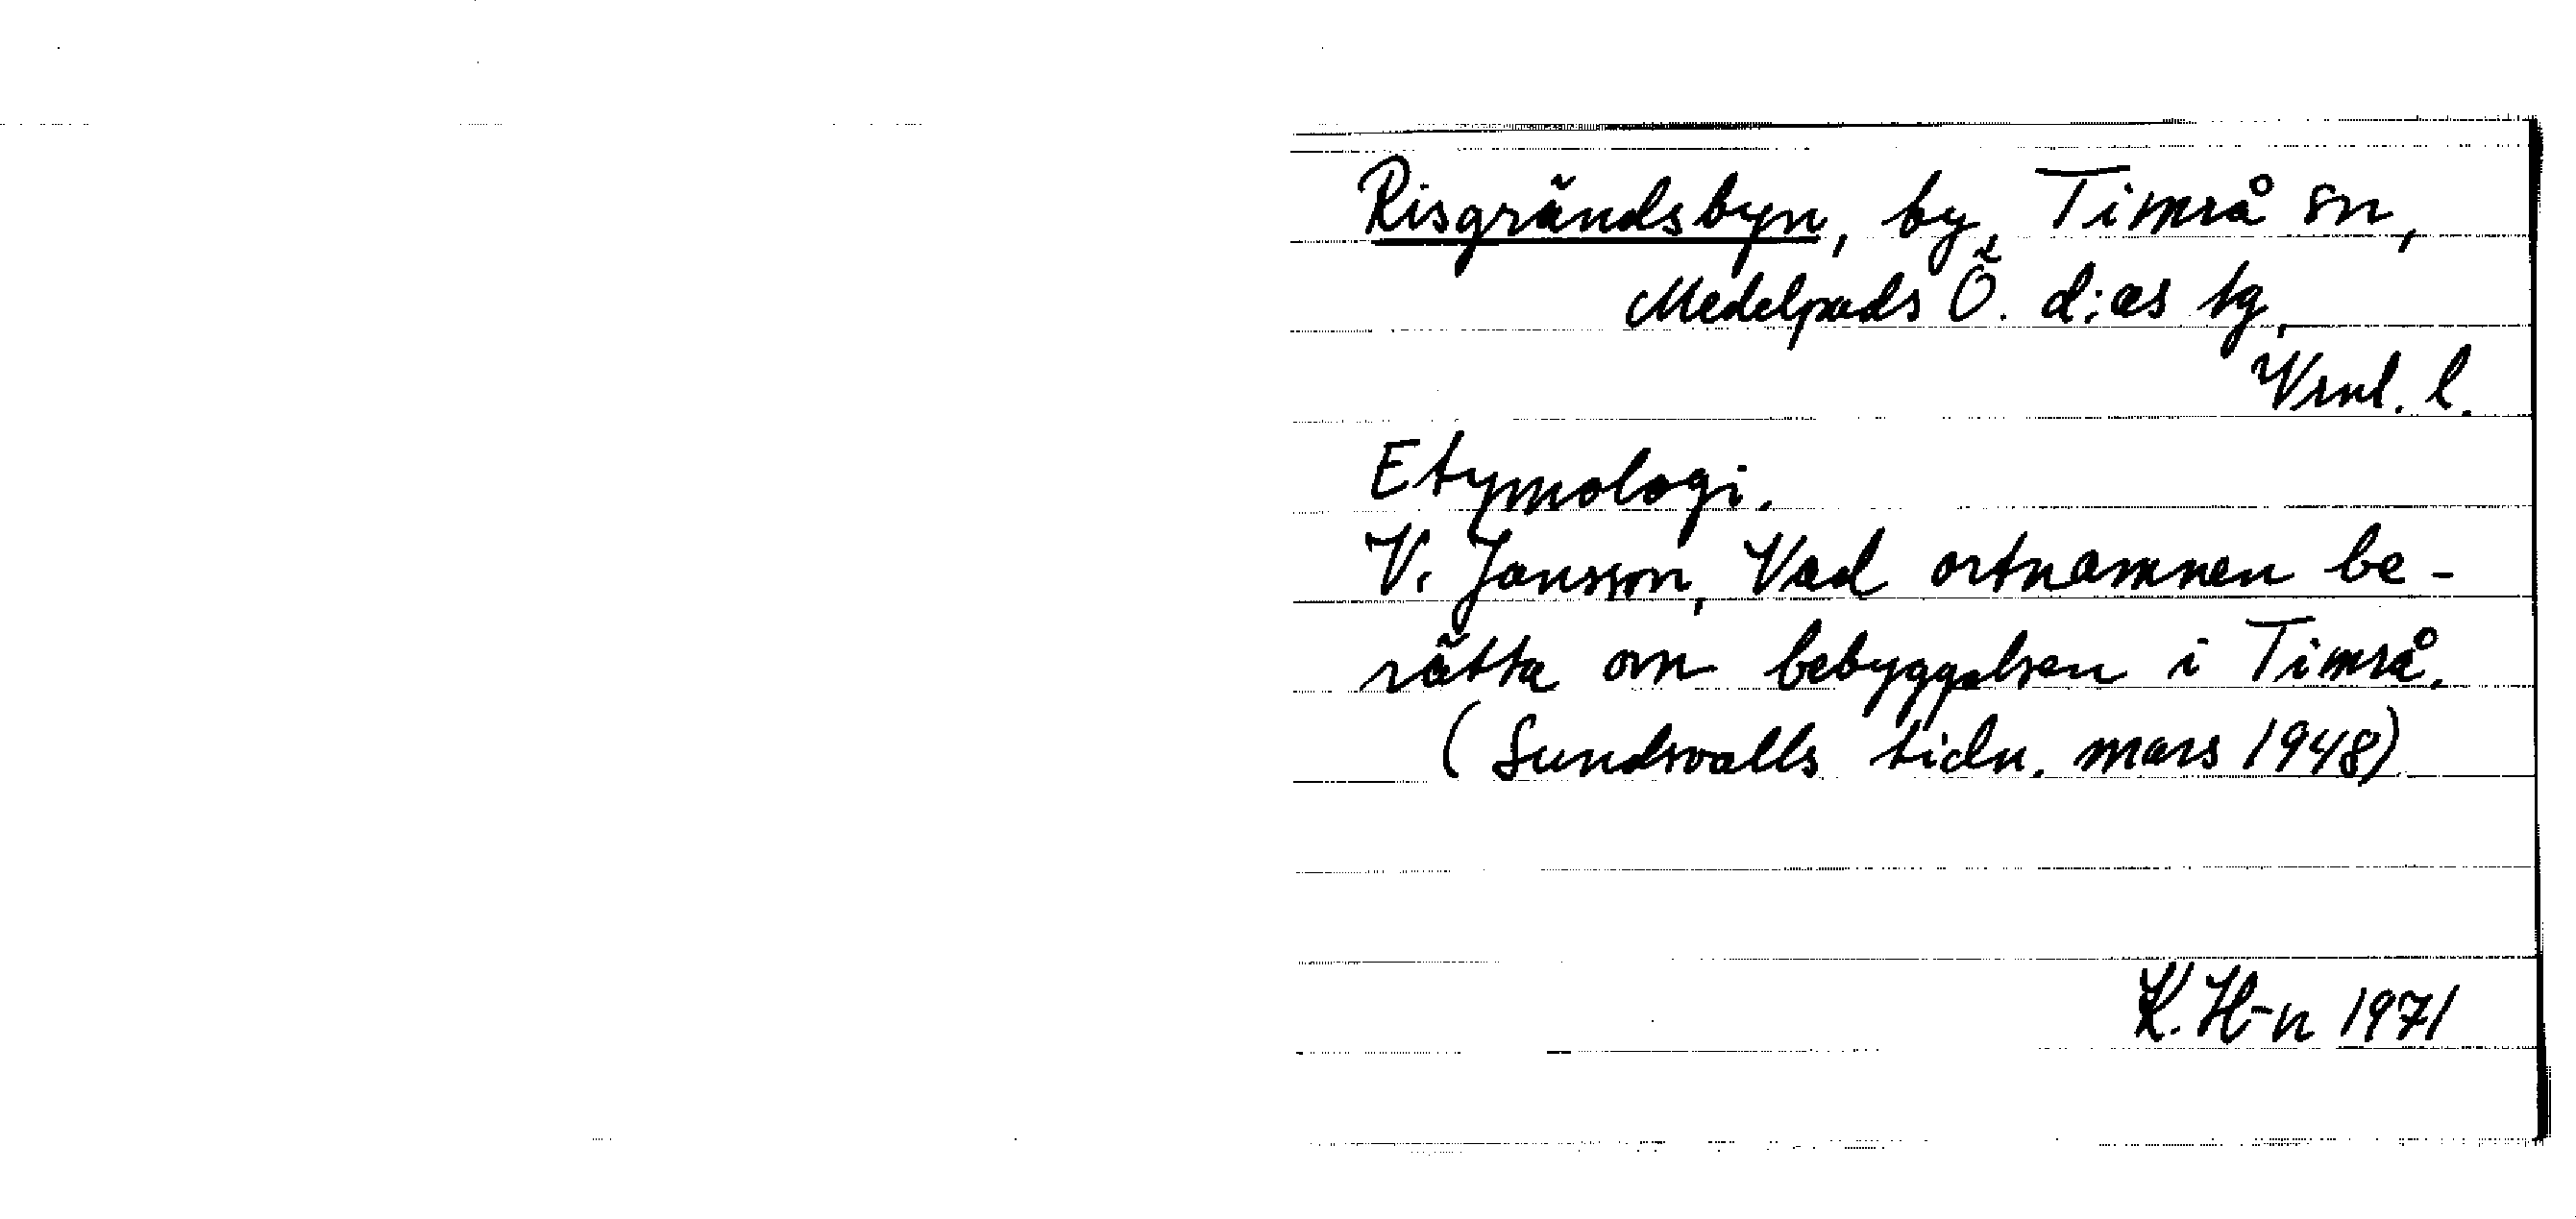 Risgrändsbyn, by, Timrå sn,
Medelpads Ö. d:as tg,
Vrnl. l.
Etymologi.
V. Jansson, Vad ortnamnen be-
rätta om bebyggelsen i Timrå.
(Sundsvalls tidn. mars 1948)
K. H-n 1971